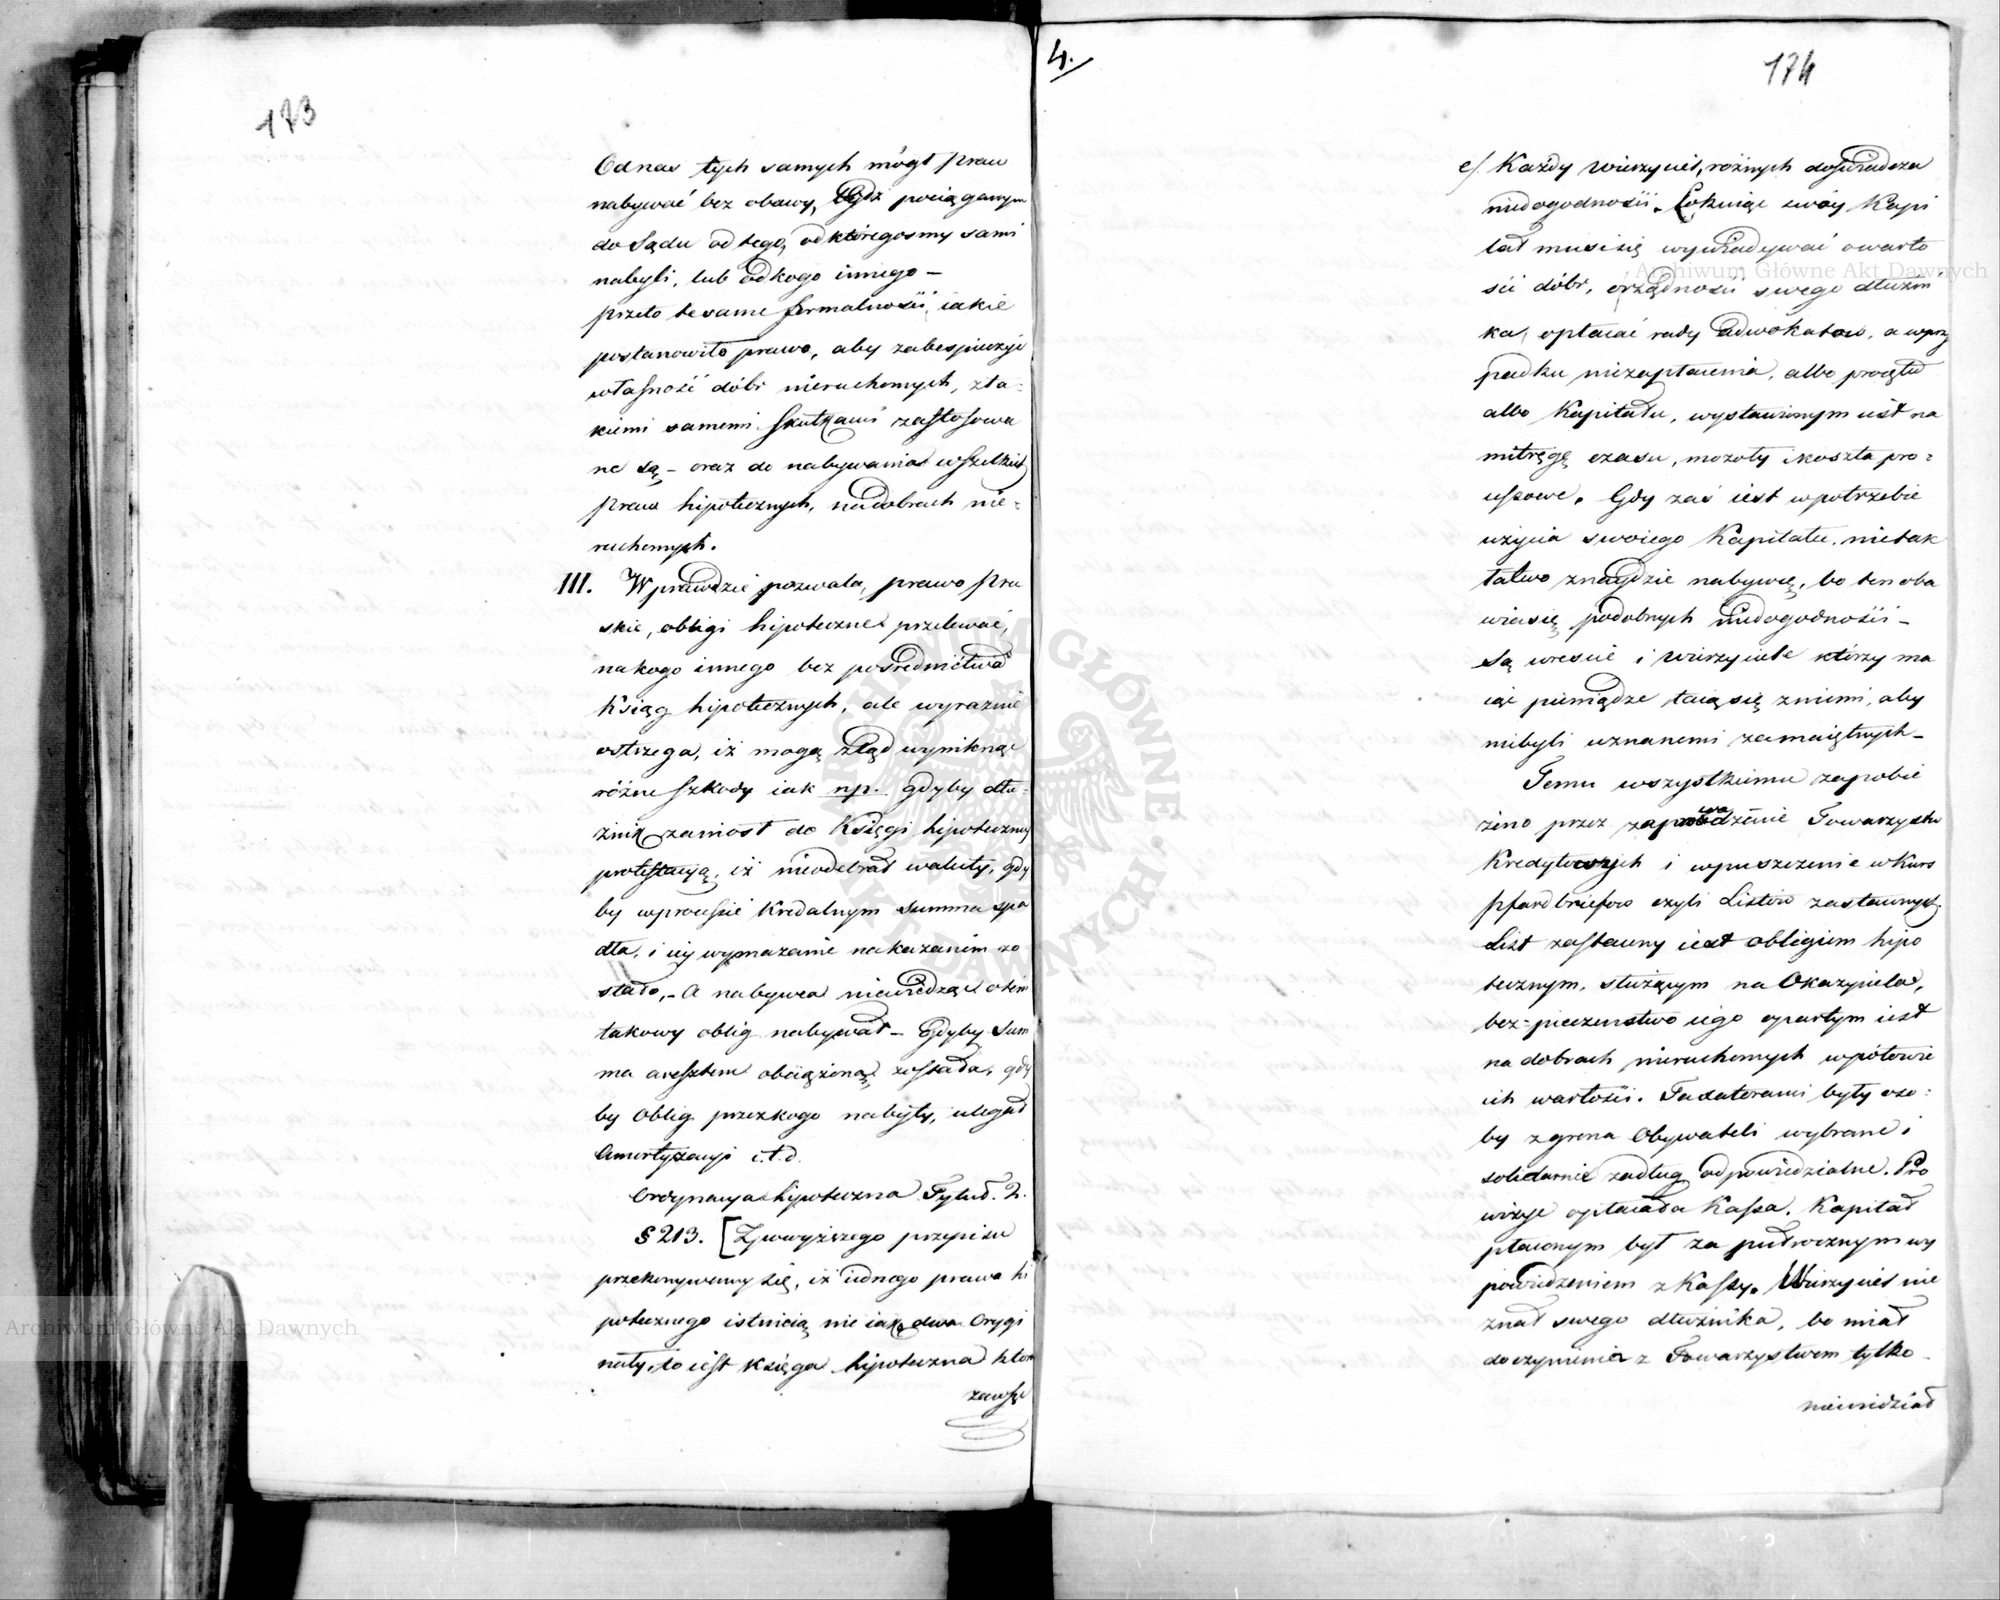 173
Od nas tych samych mógł praw
nabywać bez obawy, bądź pociąganym
do Sądu od tego, od któregosmy sami
nabyli, lub od kogo innego –
przeto te same formalności, iakie
postanowiło prawo, aby zabespieczyć
własność dóbr nieruchomych, z ta-
kiemi samemi skutkami zastosowa
ne są – oraz do nabywania wszelkich
praw hipotecznych, na dobrach nie-
ruchomych.
III. Wprawdzie pozwala, prawo Pru
skie, obligi hipoteczne przelewać,
na kogo innego bez pośrednictwa
Ksiąg hipotecznych, ale wyraźnie
ostrzega, iż mogą ztąd wyniknąć
różne szkody iak np. gdyby dłu-
żnik zaniósł do Księgi hipoteczney
protestacyą, iż nieodebrał waluty, gdy
by w processie Kredalnym summa spa
dła, i iey wymazanie nakazanem zo
stało, – A nabywca niewiedząc o tem
takowy oblig nabywał – Gdyby Sum
ma aresztem obciążoną została, gdy
by Oblig przez kogo nabyty, ulegał
Amortyzacyi i.t.d.
Ordynacya hipoteczna Tytuł. 2.
§ 213. [Z powyższego przepisu
przekonywamy się, iż iednego prawa hi
potecznego istnieią nie iako dwa Orygi
nały, to iest Księga hipoteczna która
zawsze
4.
174
e/. Każdy wierzyciel, różnych doświadcza
niedogodności. Lokuiąc swóy Kapi
tał musi się wywiadywać o warto
ści dóbr, o rządności swego dłużni
ka, opłacać rady Adwokatów, a w przy
padku niezapłacenia, albo procętu
albo Kapitału, wystawionym iest na
mitręgę czasu, mozoły i koszta pro-
cessowe. Gdy zaś iest w potrzebie
użycia swoiego Kapitału, nie tak
łatwo znaydzie nabywcę, bo ten oba
wia się podobnych niedogodności –
Są wreście i wierzyciele którzy ma
iąc pieniądze taią się z niemi, aby
niebyli uznanemi za maiętnych –
Temu wszystkiemu zapobie
żono przez zaprowadzenie Towarzystw
Kredytowych i wpuszczenie w Kurs
Pfandbriefow czyli Listów zastawnych.
List zastawny iest obligiem hipo
tecznym, służącym na Okaziciela,
bez-pieczenstwo iego opartym iest
na dobrach nieruchomych w połowie
ich wartości. Taxatorami były oso-
by z grona Obywateli wybrane i
solidarnie za dług odpowiedzialne. Pro
wizye opłacała Kassa. Kapitał
płaconym był za półrocznym wy
powiedzeniem z Kassy. Wierzyciel nie
znał swego dłużnika, bo miał
do czynienia z Towarzystwem tylko –
niewidział
Archiwum Główne Akt Dawnych
Archiwum Główne Akt Dawnych
ARCHIWUM GŁÓWNE AKT DAWNYCH